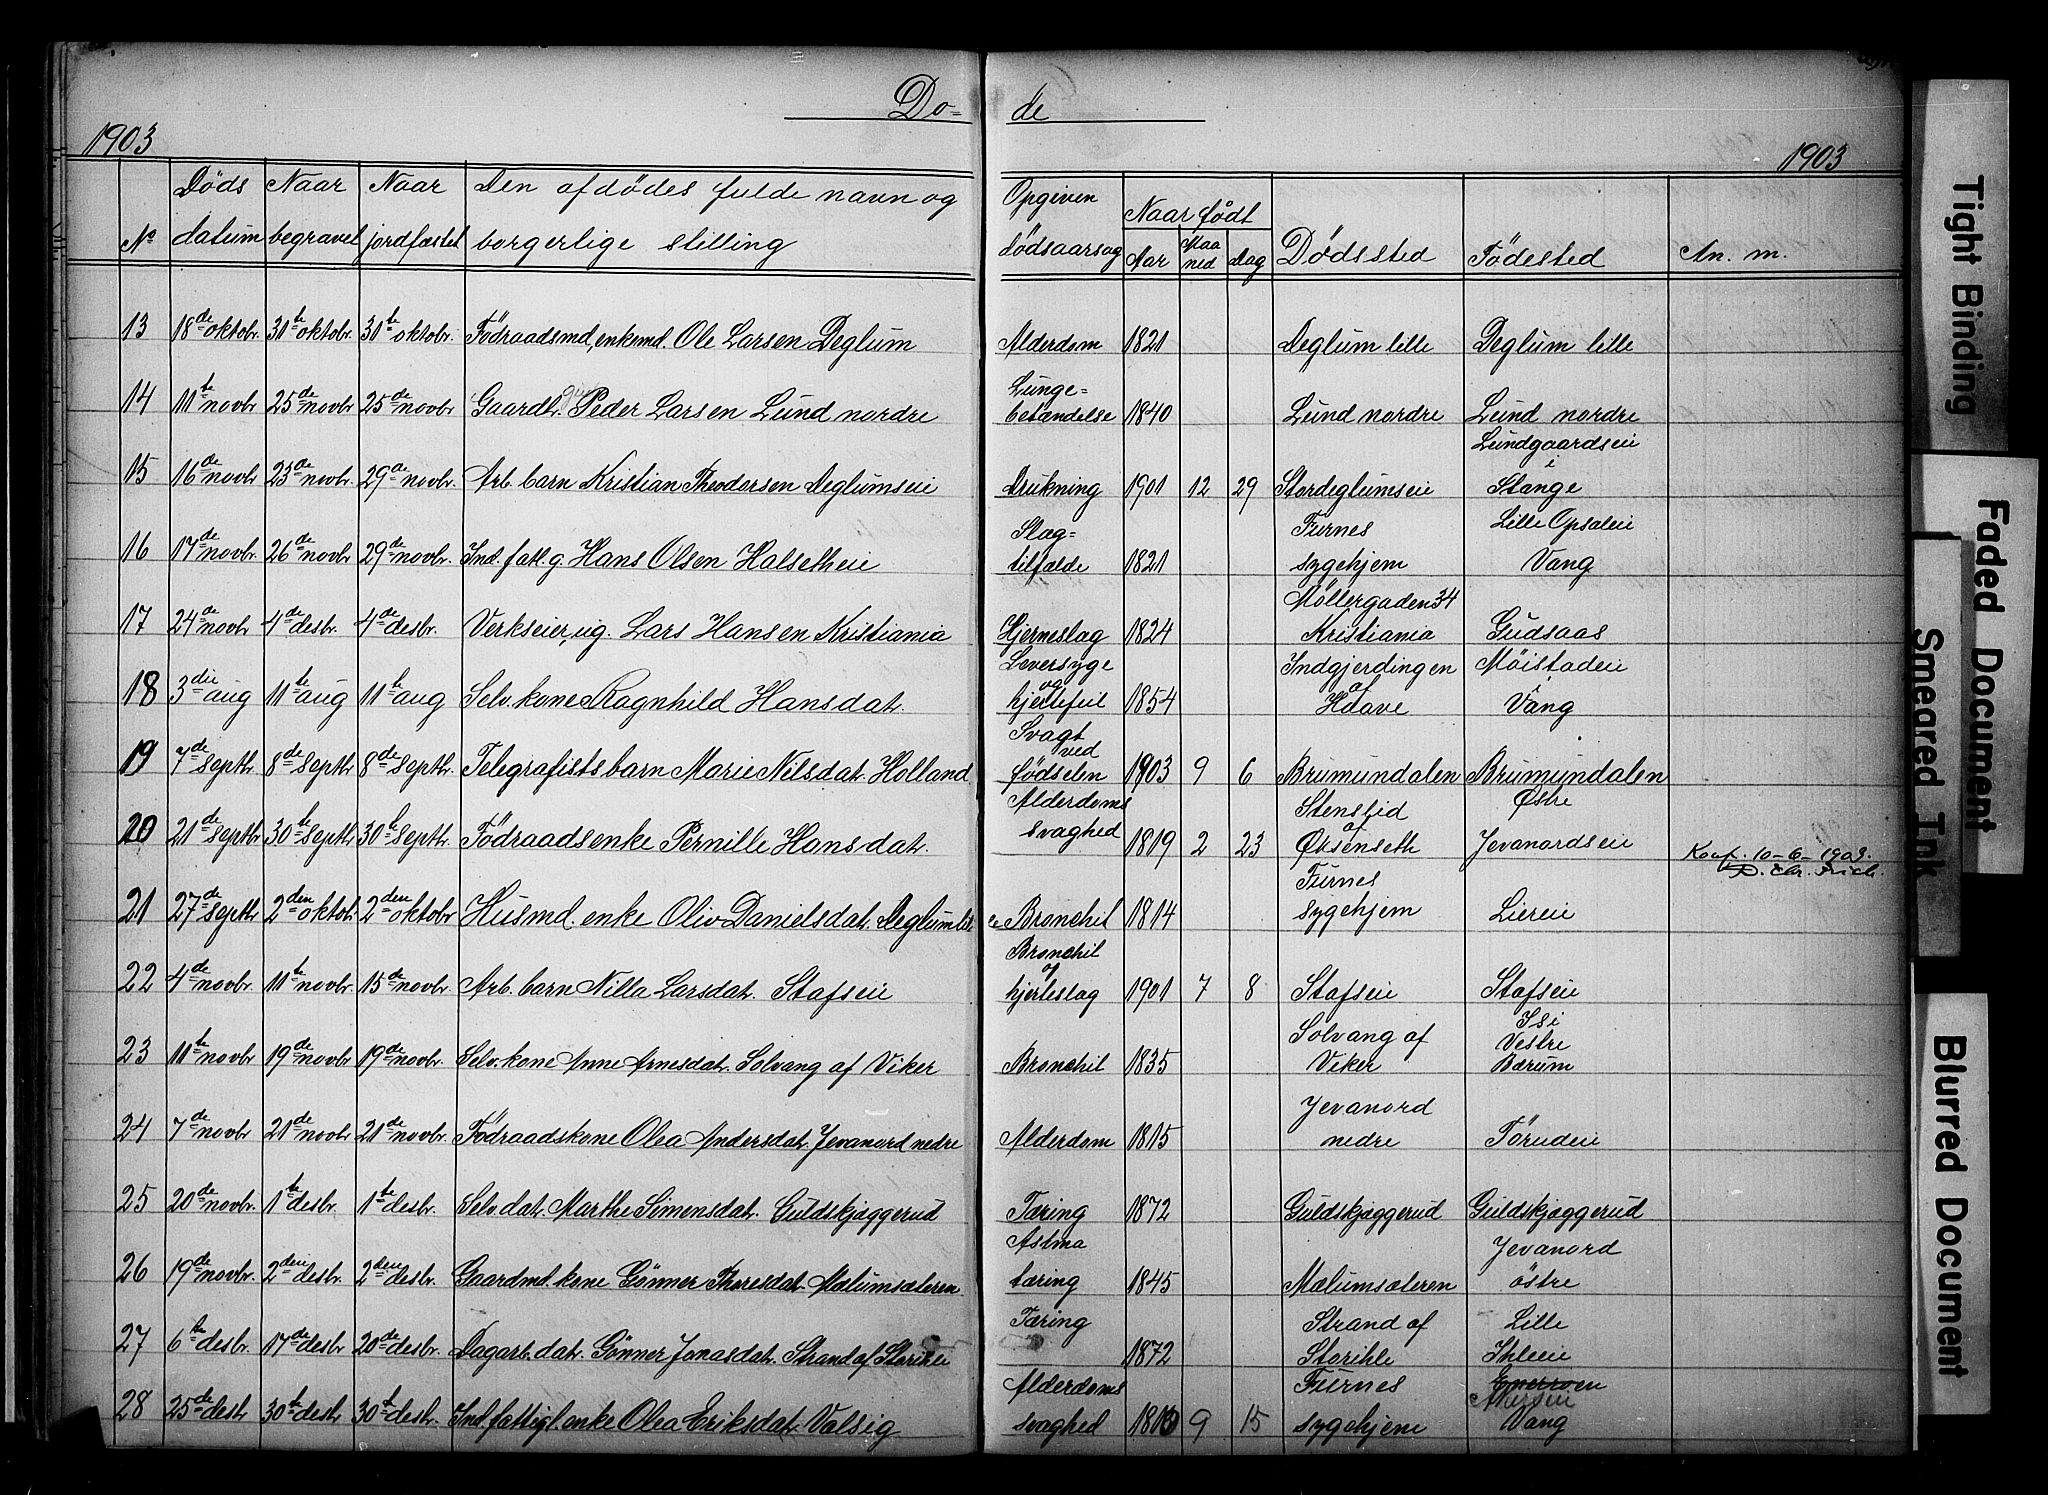 Dø= de
1903 1903
No Døds datum Naar begravet Naar jordfæstet Den afdødes fulde navn og borgerlige stilling Opgiven dødsaarsag Naar født Aar Maaned Dag Dødssted Fødested An. m.
13 18de oktobr. 31te oktobr. 31te oktobr. Födraadsmd, enkemd. Ole Larsen Deglum Alderdom 1821 Deglum lille Deglum lille
14 11te novbr 25de novbr 25de novbr Gaardbr. Peder Larsen Lund nordre Lunge= betændelse 1840 Lund nordre Lund nordre
15 16de novbr 23de novbr. 29de novbr. Arb. barn Kristian Theodorsen Deglumseie Drukning 1901 12 29 Stordeglumseie Lundgaardseie i Stange
16 17de novbr. 26de novbr 29de novbr. Ind. fatt.g. Hans Olsen Halsetheie Slag= tilfælde 1821 Furnes sygehjem Lille Opsaleie Vang
17 24de novbr 4de desbr. 4de desbr. Verkseier, ug. Lars Hansen Kristiania Hjerneslag 1824 Møllergaden 34 Kristiania Gudsaas
18 3die aug 11te aug 11te aug Selv. kone Ragnhild Hansdat. Leversyge og hjertefeil 1854 Indgjerdingen af Haave Möistadeie i Vang
19 7de septbr 8de septbr 8de septbr. Telegrafists barn Marie Nilsdat. Holland Svagt ved fødselen 1903 9 6 Brumundalen Brumundalen
20 21de septbr 30te septbr 30te septbr. Födraadsenke Pernille Hansdat. Alderdoms svaghed 1819 2 23 Stenslid af Øksenseth Østre Jevanordseie Konf. 10-6-1903. D. Chr. Frich.
21 27de septbr 2den oktobr. 2den oktobr Husmd. enke Oliv Danielsdat. Deglum lille Bronchit 1814 Furnes sygehjem Liereie
22 4de novbr. 11te novbr. 15de novbr. Arb. barn Nilla Larsdat. Stafseie Bronchit og hjerteslag 1901 7 8 Stafseie Stafseie
23 11te novbr 19de novbr 19de novbr. Selv. kone Anne Arnesdat. Solvang af Viker Bronchit 1835 Solvang af Viker Isi Vestre Bærum
24 7de novbr 21de novbr 21de novbr. Födraadskone Olea Andersdat. Jevanord nedre Alderdom 1815 Jevanord nedre Törudeie
25 20de novbr. 1te desbr. 1te desbr. Selv. dat. Marthe Simensdat. Guldskjæggerud Tæring 1872 Guldskjæggerud Guldskjæggerud
26 19de novbr. 2den desbr. 2den desbr. Gaardmd. kone Gønner Thoresdat. Mælumsæteren Astma tæring 1845 Mælumsæteren Jevanord östre
27 6te desbr. 17de desbr 20de desbr. Dagarb. dat. Gønner Jonasdat. Strand af Storihle Tæring 1872 Strand af Storihle Lille Ihleeie
28 25de desbr 30te desbr 30te desbr. Ind. fattigl. enke Olea Eriksdat. Valsig Alderdoms svaghed 9 15 Furnes sygehjem Vang
Tight Binding
Faded Document
Smeared Ink
Blurred Document